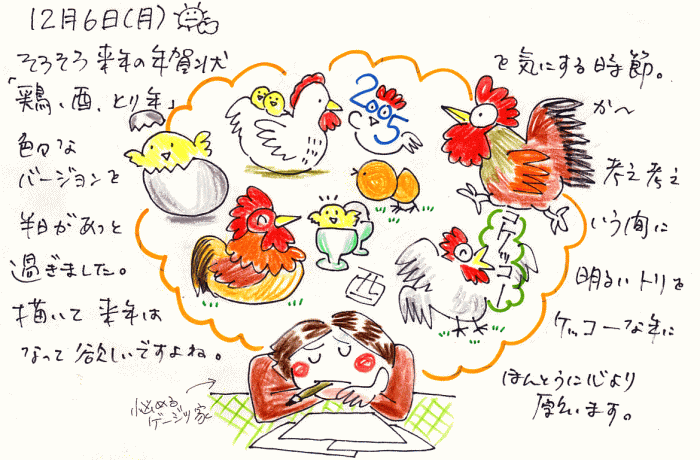 12月6日(月)
そろそろ 来年の年賀状 を気にする時節。
「鶏、酉、とり年」 か〜
色々な
バージョンを 考え考え
半日があっと いう間に
過ぎました。 明るいトリを
描いて 来年は ケッコーな年に
なって欲しいですよね。
ほんとうに心より
願います。
2005
コケコッコー
酉
悩める
ゲージツ家